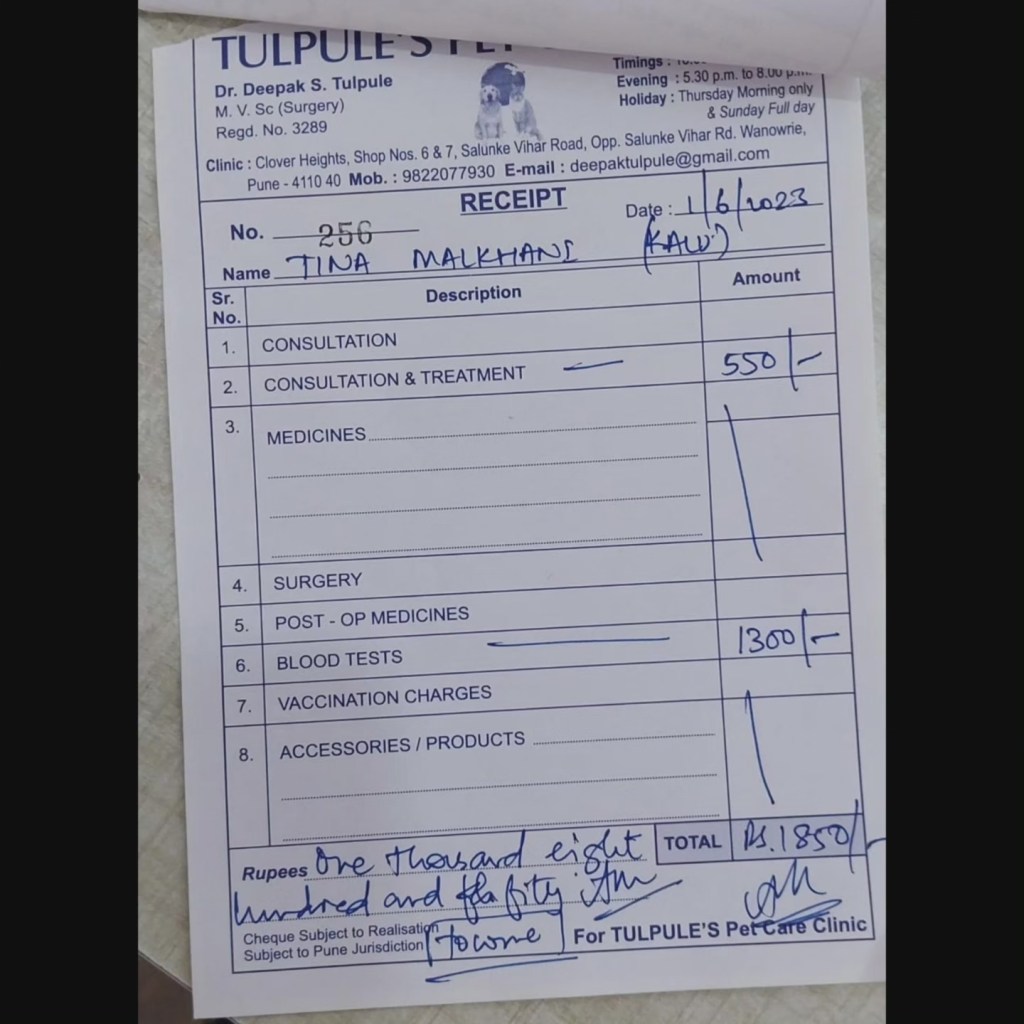 TULPULE'S PET
Dr. Deepak S. Tulpule
M. V. Sc (Surgery)
Regd. No. 3289
Timings :
Evening : 5.30 p.m. to 8.00 p.m.
Holiday : Thursday Morning only
& Sunday Full day
Clinic : Clover Heights, Shop Nos. 6 & 7, Salunke Vihar Road, Opp. Salunke Vihar Rd. Wanowrie,
Pune - 4110 40 Mob. : 9822077930 E-mail : deepaktulpule@gmail.com
RECEIPT
No. 256 Date : 1/6/2023
Name TINA MALKHANI (KALU)
Sr. No. Description Amount
1. CONSULTATION
2. CONSULTATION & TREATMENT 550/-
3. MEDICINES
4. SURGERY
5. POST - OP MEDICINES
6. BLOOD TESTS 1300/-
7. VACCINATION CHARGES
8. ACCESSORIES / PRODUCTS
TOTAL Rs. 1850/-
Rupees One thousand eight
hundred and fifity
Cheque Subject to Realisation
Subject to Pune Jurisdiction
For TULPULE'S Pet Care Clinic